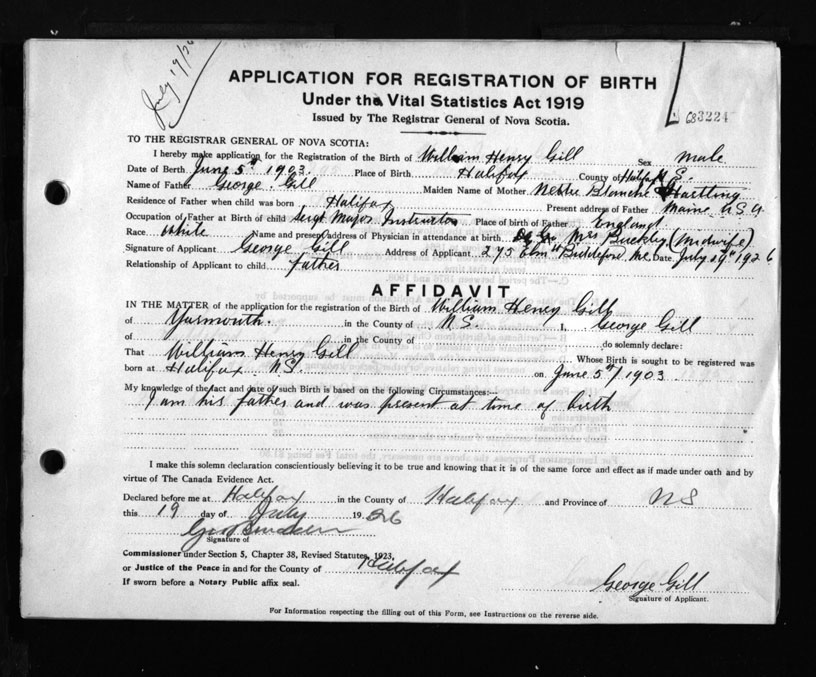 July 19/26
APPLICATION FOR REGISTRATION OF BIRTH
Under the Vital Statistics Act 1919
Issued by The Registrar General of Nova Scotia.
TO THE REGISTRAR GENERAL OF NOVA SCOTIA:
I hereby make application for the Registration of the Birth of William Henry Gill Sex male
Date of Birth June 5th 1903 Place of Birth Halifax County of Halifax
Name of Father George Gill Maiden Name of Mother Blanche Hartling
Residence of Father when child was born Halifax Present address of Father Maine U.S.A
Occupation of Father at Birth of child Sergt Major Instructor Place of birth of Father England
Race White Name and present address of Physician in attendance at birth Mrs Buckley (Midwife)
Signature of Applicant George Gill Address of Applicant 275 Elm St Biddeford Me Date July 19th 1926
Relationship of Applicant to child father
AFFIDAVIT
IN THE MATTER of the application for the registration of the Birth of William Henry Gill
of Yarmouth in the County of N.S. I, George Gill
of in the County of do solemnly declare:
That William Henry Gill Whose Birth is sought to be registered was
born at Halifax N.S. on June 5th/1903
My knowledge of the fact and date of such Birth is based on the following Circumstances:—
I am his father and was present at time of birth
I make this solemn declaration conscientiously believing it to be true and knowing that it is of the same force and effect as if made under oath and by
virtue of The Canada Evidence Act.
Declared before me at Halifax in the County of Halifax and Province of NS
this 19 day of July 1926
Signature of
Commissioner under Section 5, Chapter 38, Revised Statutes, 1923,
or Justice of the Peace in and for the County of Halifax
If sworn before a Notary Public affix seal.
George Gill
Signature of Applicant.
For Information respecting the filling out of this Form, see Instructions on the reverse side.